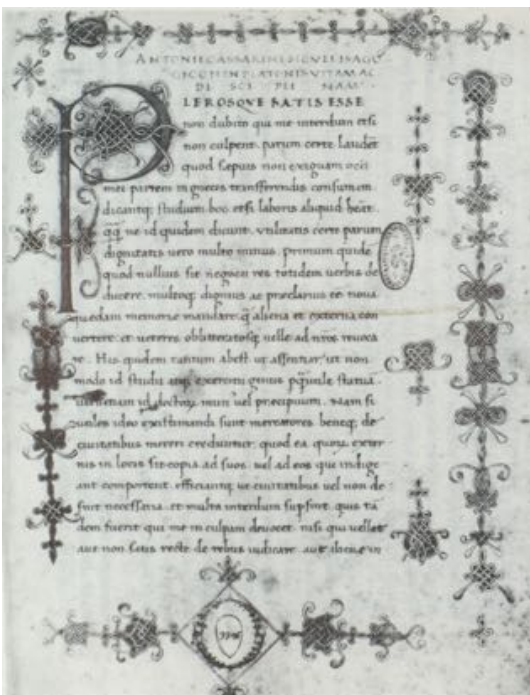 ANTONII CASSARINI SICULI ISAGO
GICON IN PLATONIS VITAM AC
DISCIPLINAM
PLEROSQVE SATIS ESSE
non dubito qui me interdum etsi
non culpent, parum certe laudet
quod sepius non exiguam ocii
mei partem in grecis transferendis consumem
dicantq; studium hoc etsi laboris aliquid heat.
qq ne id quidem dicunt. utilitatis certe parum
dignitatis uero multo minus. primum quide
quod nullius sit negocii res totidem uerbis de
ducere. multoq; dignius ac preclarius ee noua
quedam memorie mandare. q aliena et externa con
uertere. et ueteres oblitteratosq uelle ad nros reuoca
re. His quidem tantum abest ut assentiar ut non
modo id studii atq exercitii genus
uerum etiam id doctoq; mun uel precipuum. Nam si
utiles ideo existimandi sunt mercatores beneq; de
ciuitatibus mereri creduntur. quod ea quoq exter
nis in locis sit copia ad suos. uel ad eos que indige
ant comportent. efficiantq; ut ciuitatibus uel non de
sint necessaria. et multa interdum supsint. quis ta
dem fuerit qui me in culpam deuocet. nisi qui uellet
aut non satis recte de rebus iudicare. aut